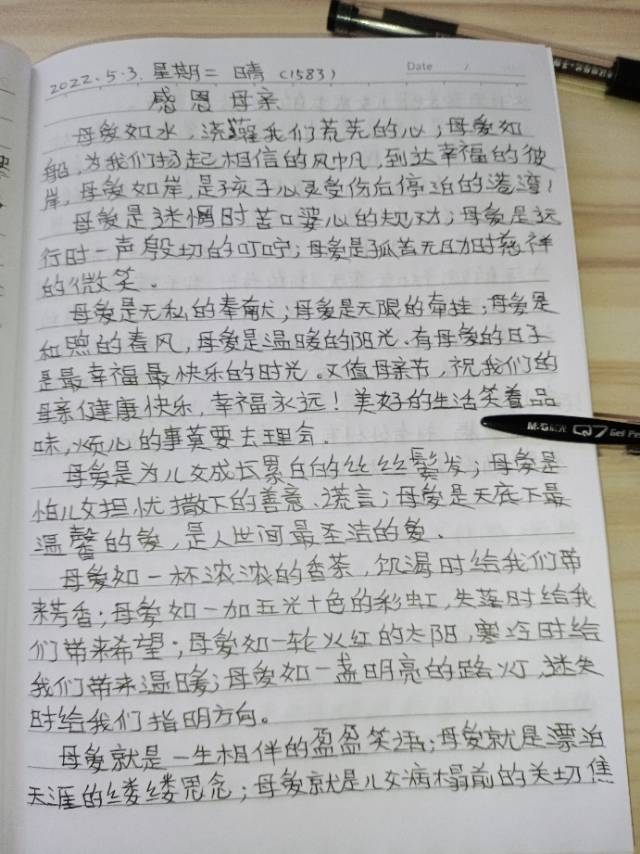 Date /
2022.5.3. 星期二 晴 (1583)
感恩母亲
母爱如水,浇灌我们荒芜的心;母爱如
船,为我们扬起相信的风帆,到达幸福的彼
岸,母爱如岸,是孩子心灵受伤后停泊的港湾!
母爱是迷惘时苦口婆心的规劝;母爱是远
行时一声殷切的叮咛;母爱是孤苦无助时慈祥
的微笑。
母爱是无私的奉献;母爱是无限的牵挂;母爱是
和煦的春风,母爱是温暖的阳光.有母爱的日子
是最幸福最快乐的时光。又值母亲节,祝我们的
母亲健康快乐,幸福永远!美好的生活笑着品
味,烦心的事莫要去理会.
母爱是为儿女成长累白的丝丝鬓发;母爱是
怕儿女担忧撒下的善意、谎言;母爱是天底下最
温馨的爱,是人世间最圣洁的爱.
母爱如一杯浓浓的香茶,饥渴时给我们带
来芳香;母爱如一加五光十色的彩虹,失落时给我
们带来希望;母爱如一轮火红的太阳,寒冷时给
我们带来温暖;母爱如一盏明亮的路灯,迷失
时给我们指明方向。
母爱就是一生相伴的盈盈笑语;母爱就是漂泊
天涯的缕缕思念;母爱就是儿女病榻前的关切焦
M&G 晨光 Q7 Gel Pe